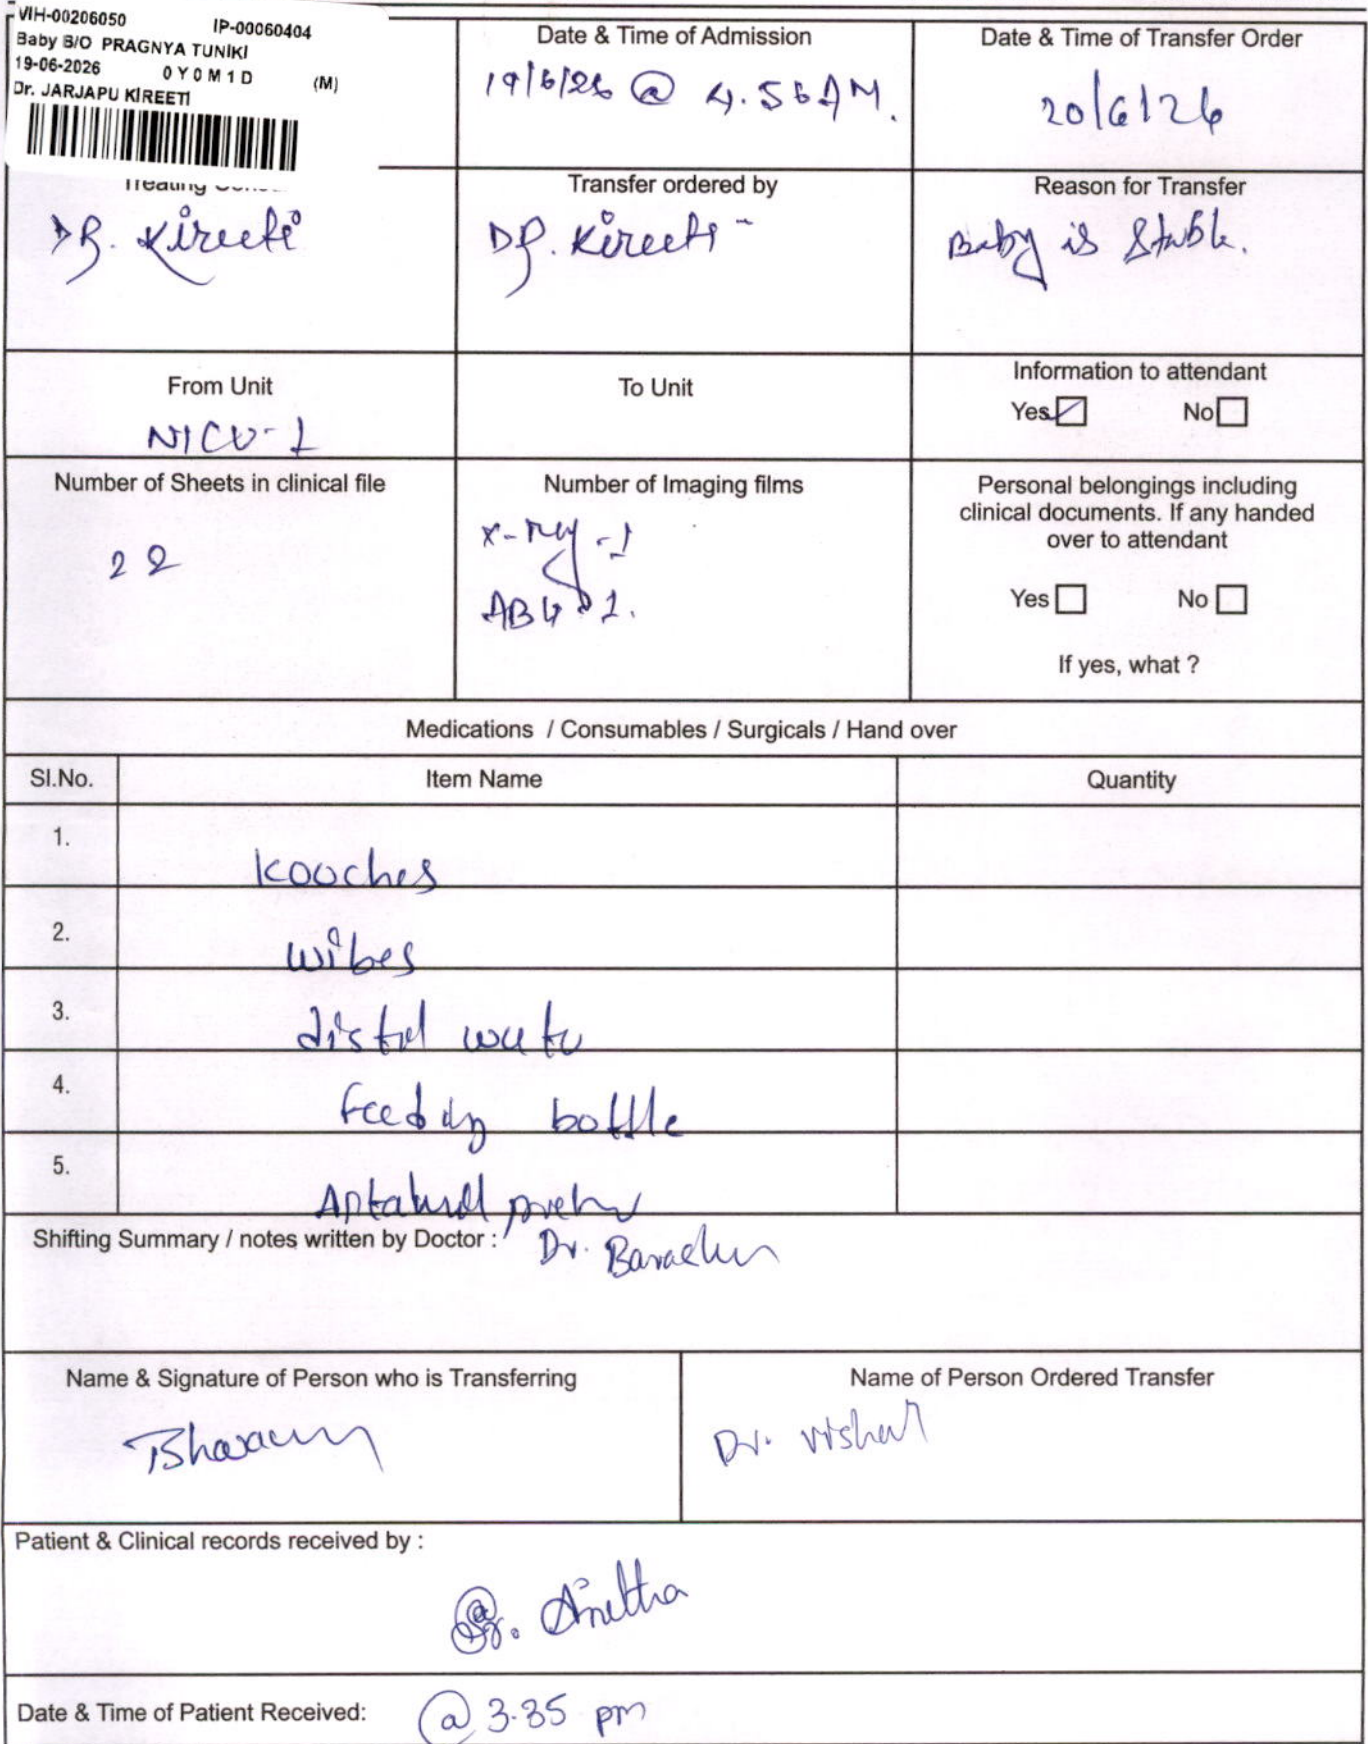 VIH-00206050 IP-00060404
Baby B/O PRAGNYA TUNIKI
19-06-2026 0Y0M1D (M)
Dr. JARJAPU KIREETI
Date & Time of Admission
19/6/26 @ 4.56AM.
Date & Time of Transfer Order
20/6/26
Treating
DR. Kireeti
Transfer ordered by
DR. Kireeti
Reason for Transfer
Baby is Stable.
From Unit
NICU-1
To Unit
Information to attendant
Yes No
Number of Sheets in clinical file
22
Number of Imaging films
x-ray -1
ABG - 1.
Personal belongings including
clinical documents. If any handed
over to attendant
Yes No
If yes, what ?
Medications / Consumables / Surgicals / Hand over
Sl.No. Item Name Quantity
1. Kooches
2. wibes
3. distil
4. Feeding bottle
5.
Shifting Summary / notes written by Doctor : Dr.
Name & Signature of Person who is Transferring
Name of Person Ordered Transfer
Dr. Vishal
Patient & Clinical records received by :
Anitha
Date & Time of Patient Received: @ 3.35 pm